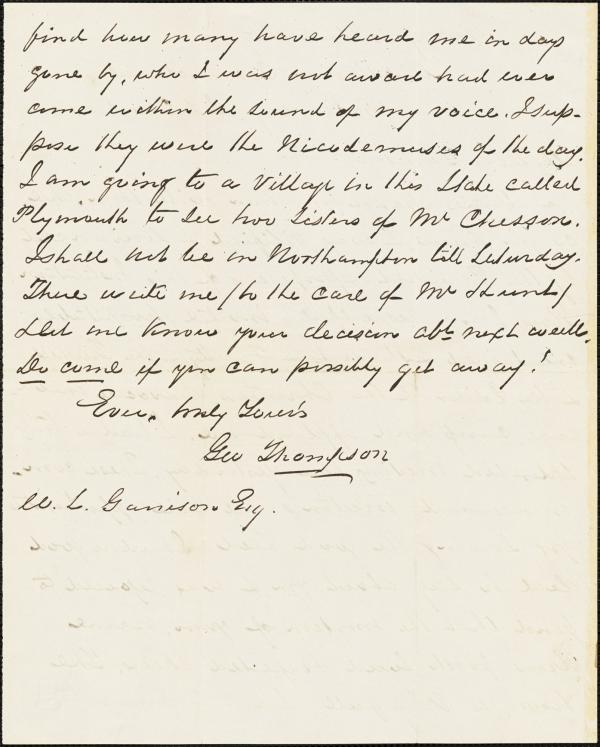 find how many have heard me in days
gone by, who I was not aware had ever
come within the sound of my voice. I sup-
pose they were the Nicodemuses of the day.
I am going to a Village in this State called
Plymouth to see two sisters of Mr Chesson.
I shall not be in Northampton till Saturday.
There write me / to the care of Mr Hunt /
Let me know your decision abt. next week.
Do come if you can possibly get away!
Ever, truly Yours
Geo Thompson
W. L. Garrison Esq.